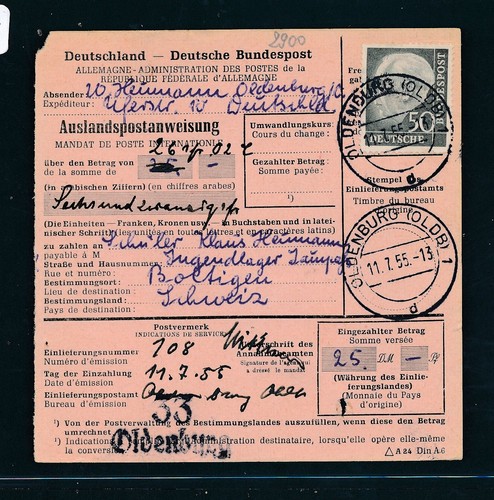 2900
Deutschland — Deutsche Bundespost
ALLEMAGNE-ADMINISTRATION DES POSTES de la
RÉPUBLIQUE FÉDÉRALE D'ALLEMAGNE
Absender
Expéditeur:
Oldenburg/O
Uferstr. 10
Auslandspostanweisung
MANDAT DE POSTE INTERNATIONAL
Umwandlungskurs:
Cours du change:
über den Betrag von
de la somme de
Gezahlter Betrag:
Somme payée:
¹)
(in arabischen Ziffern) (en chiffres arabes)
(Die Einheiten — Franken, Kronen usw. — in Buchstaben und in latei-
nischer Schrift) (les unités en toutes lettres et en caractères latins)
zu zahlen an
payable à M
Schüler Klaus Heimann
Straße und Hausnummer
Rue et numéro:
Jugendlager
Bestimmungsort:
Lieu de destination:
Boltigen
Bestimmungsland:
Pays de destination:
Schweiz
50
DEUTSCHE
BUNDESPOST
OLDENBURG (OLDB)
Stempel des
Einlieferungspostamts
Timbre du bureau
d'origine
OLDENBURG (OLDB) 1
11.7.55.-13
d
Postvermerk
INDICATIONS DE SERVICE
Unterschrift des
Annahmebeamten
Signature de l'agent qui
a dressé le mandat
Einlieferungsnummer
Numéro d'émission
108
Tag der Einzahlung
Date d'émission
11.7.55
Einlieferungspostamt
Bureau d'émission
Eingezahlter Betrag
Somme versée
25 DM — Pf
(Währung des Einlie-
ferungslandes)
(Monnaie du Pays
d'origine)
¹) Von der Postverwaltung des Bestimmungslandes auszufüllen, wenn diese den Betrag
umrechnet
¹) Indications administration destinataire, lorsqu'elle opère elle-même
la conversion
33
Oldenburg
△ A 24 Din A 6